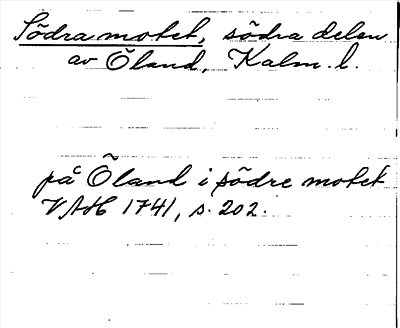 Södra motet, södra delen
av Öland, Kalm. l.
på Öland i södre motet
VAH 1741, s. 202.